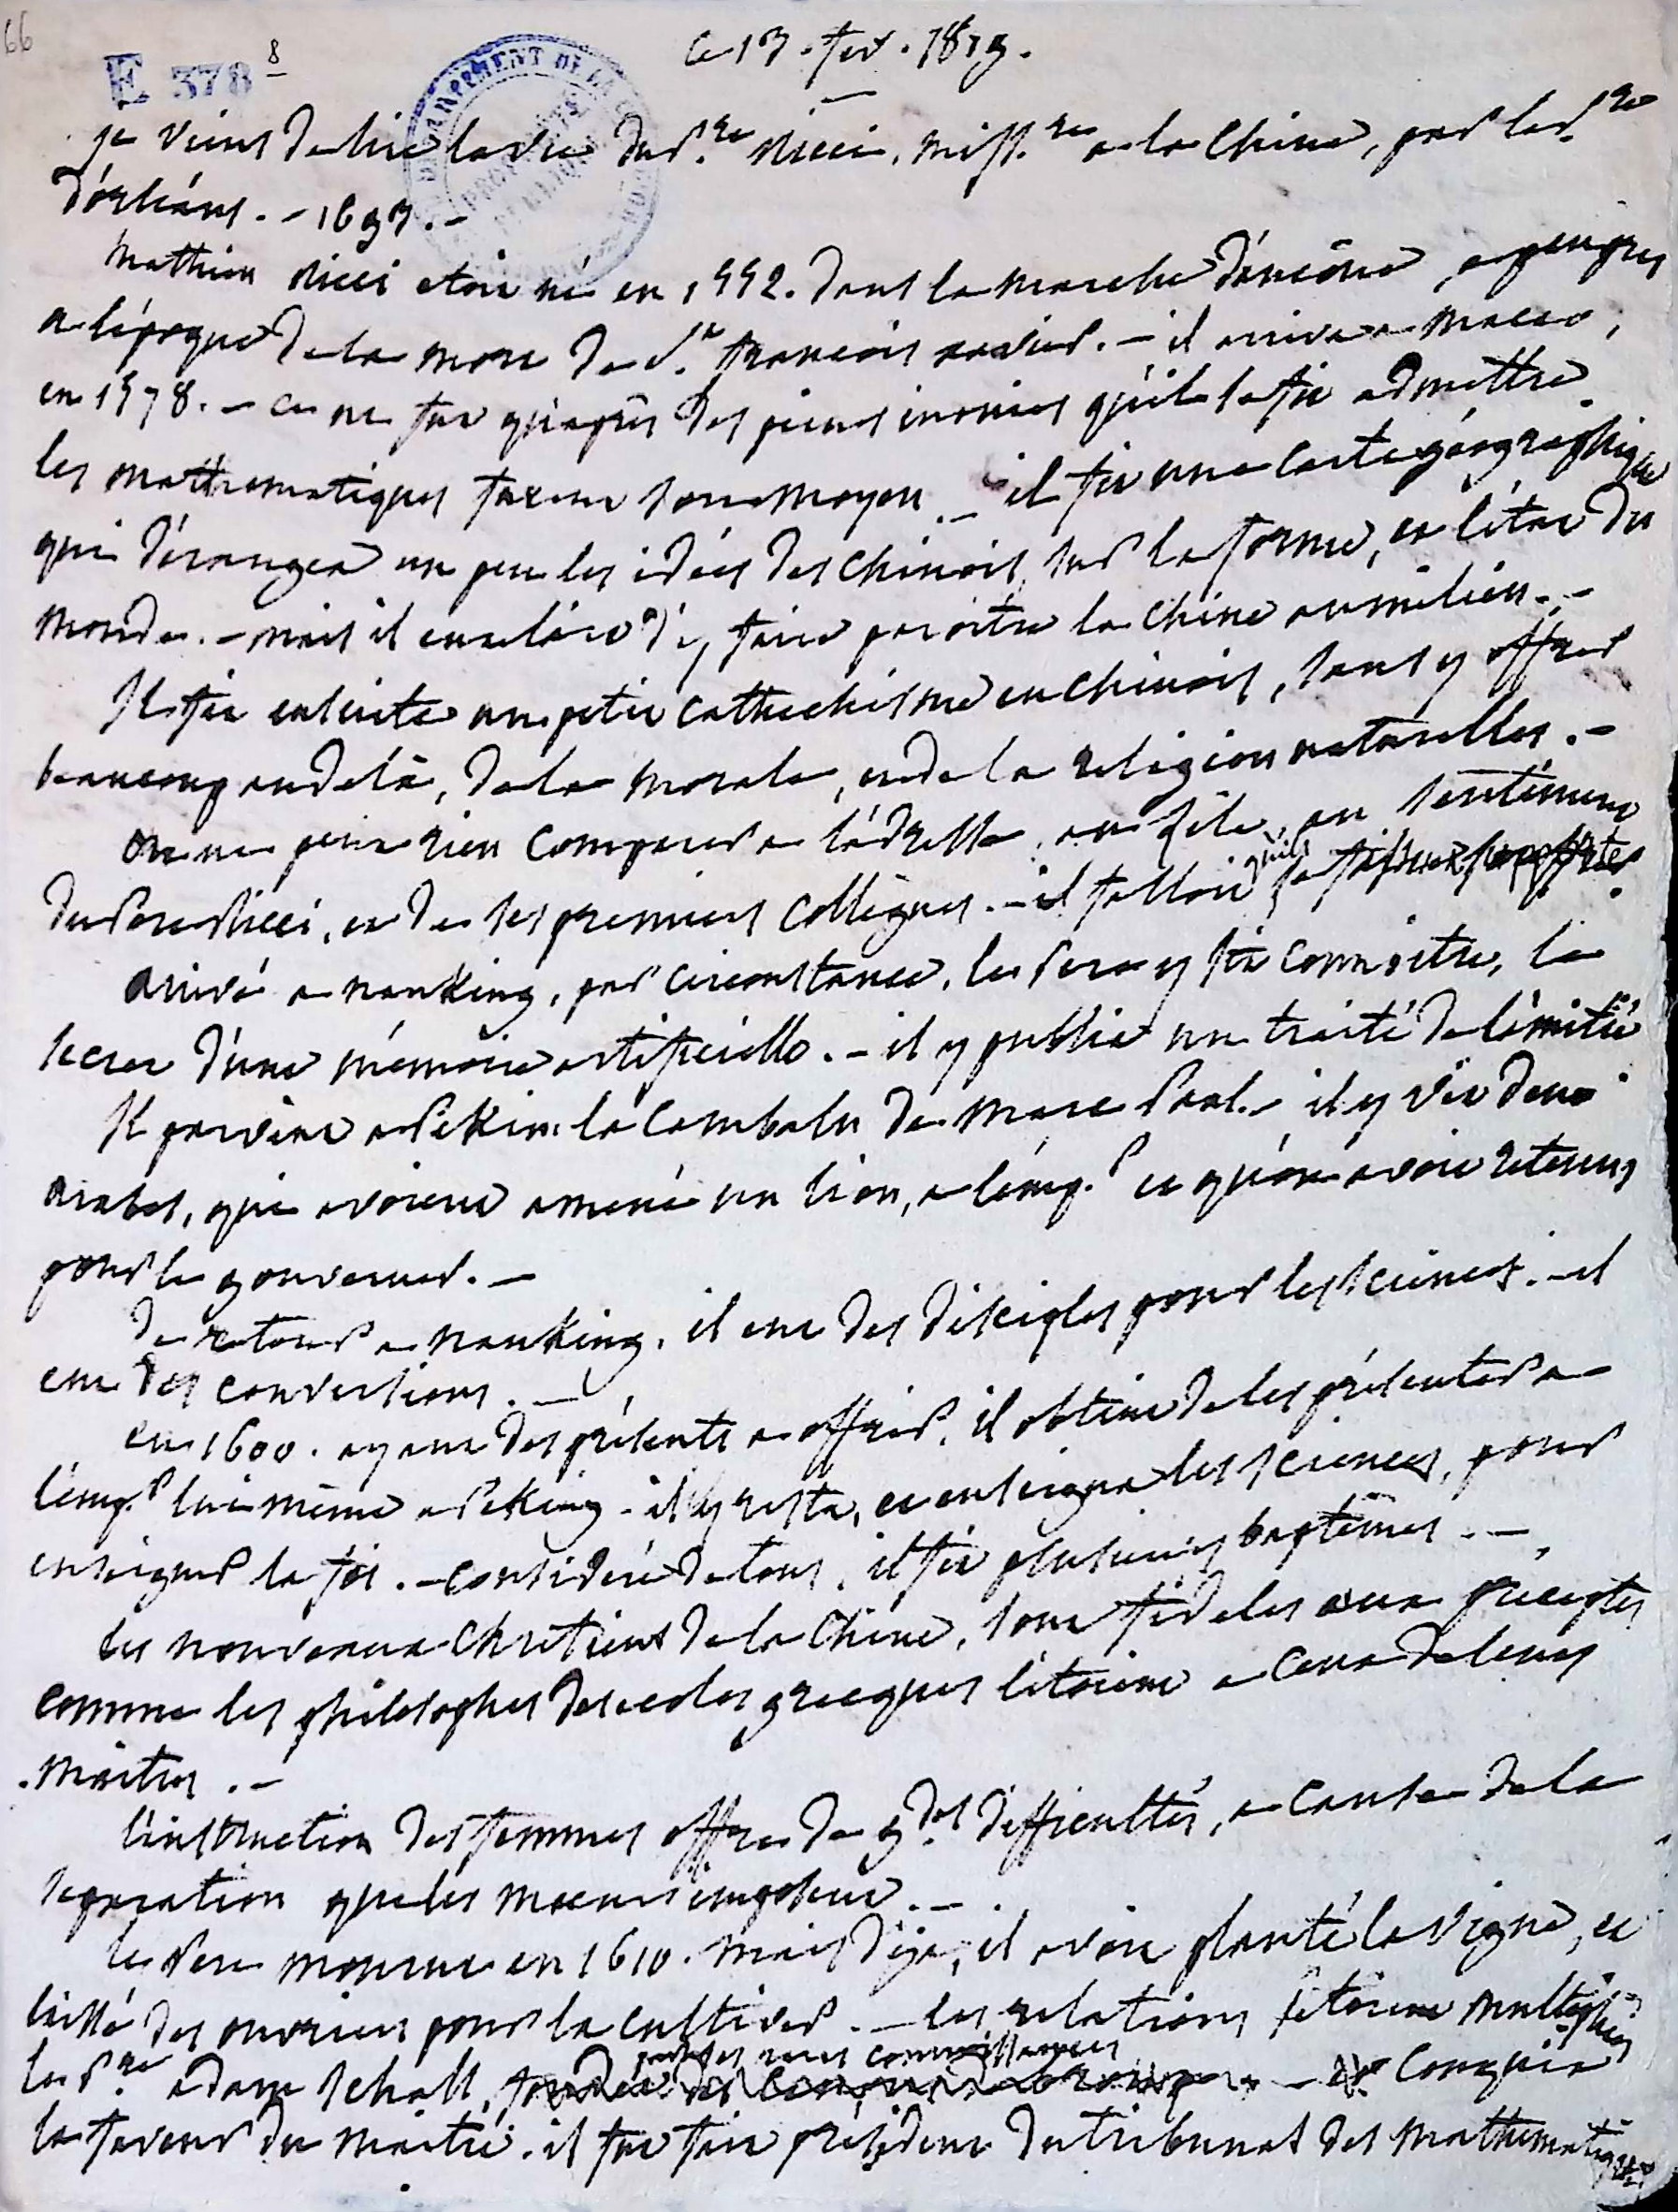 66
E 378 8
ce 13. fev. 1819.
je viens de lire la vie du P.re Ricci, miss.re a la Chine, par le P.re
d'orléans. - 1693. -
Mathieu Ricci etoit né en 1552. dans la marche d'ancône, a peu pres
a l'époque de la mort de St. francois xavier. - il arriva a Macao,
en 1578. - ce ne fut qu'après des peines inouies qu'il se fit admettre.
les mathematiques furent son moyen. - il fit une carte géographique
qui dérangea un peu les idées des chinois, sur la forme, et l'état du
monde. - mais il eut l'art d'y faire paroitre la Chine au milieu. -
Il fit ensuite un petit cathechisme en chinois, sans y offrir
beaucoup au delà, de la morale, et de la religion naturelles. -
on ne peut rien comparer a l'adresse, au zèle, au sentiment
du Pere Ricci, et de ses premiers collègues. - il falloit qu'ils se fissent supporter.
arrivé a nanking, par circonstance, le Pere y fit connoitre, le
secret d'une mémoire artificielle. - il y publia un traité de l'amitié
Il parvint a Pékin. le Cambalu de Marc Paul. - il y vit deux
arabes, qui avoient amené un lion, a l'emp.r et qu'on avoit retenus
pour le gouverner. -
de retour a nanking, il eut des disciples pour les sciences. - il
eut des conversions. -
en 1600. ayant des présents a offrir, il obtint de les présenter a
l'emp.r lui même a Peking - il y resta, et enseigna les sciences, pour
enseigner la foi. - considéré de tous, il fit plusieurs baptêmes. -
les nouveaux chretiens de la Chine, sont fideles aux preceptes
comme les philosophes des ecoles grecques l'etoient a ceux de leurs
maitres. -
l'instruction des femmes offre de g.des difficultés, a cause de la
separation que les moeurs imposent. -
le Pere mourut en 1610. mais déja, il avoit planté la vigne, et
laissé des ouvriers pour la cultiver. - les relations s'etoient multipliées
par ses rares connoissances
le P.re adam Schall, conquit
la faveur du maitre. il fut fait président du tribunal des mathematiques